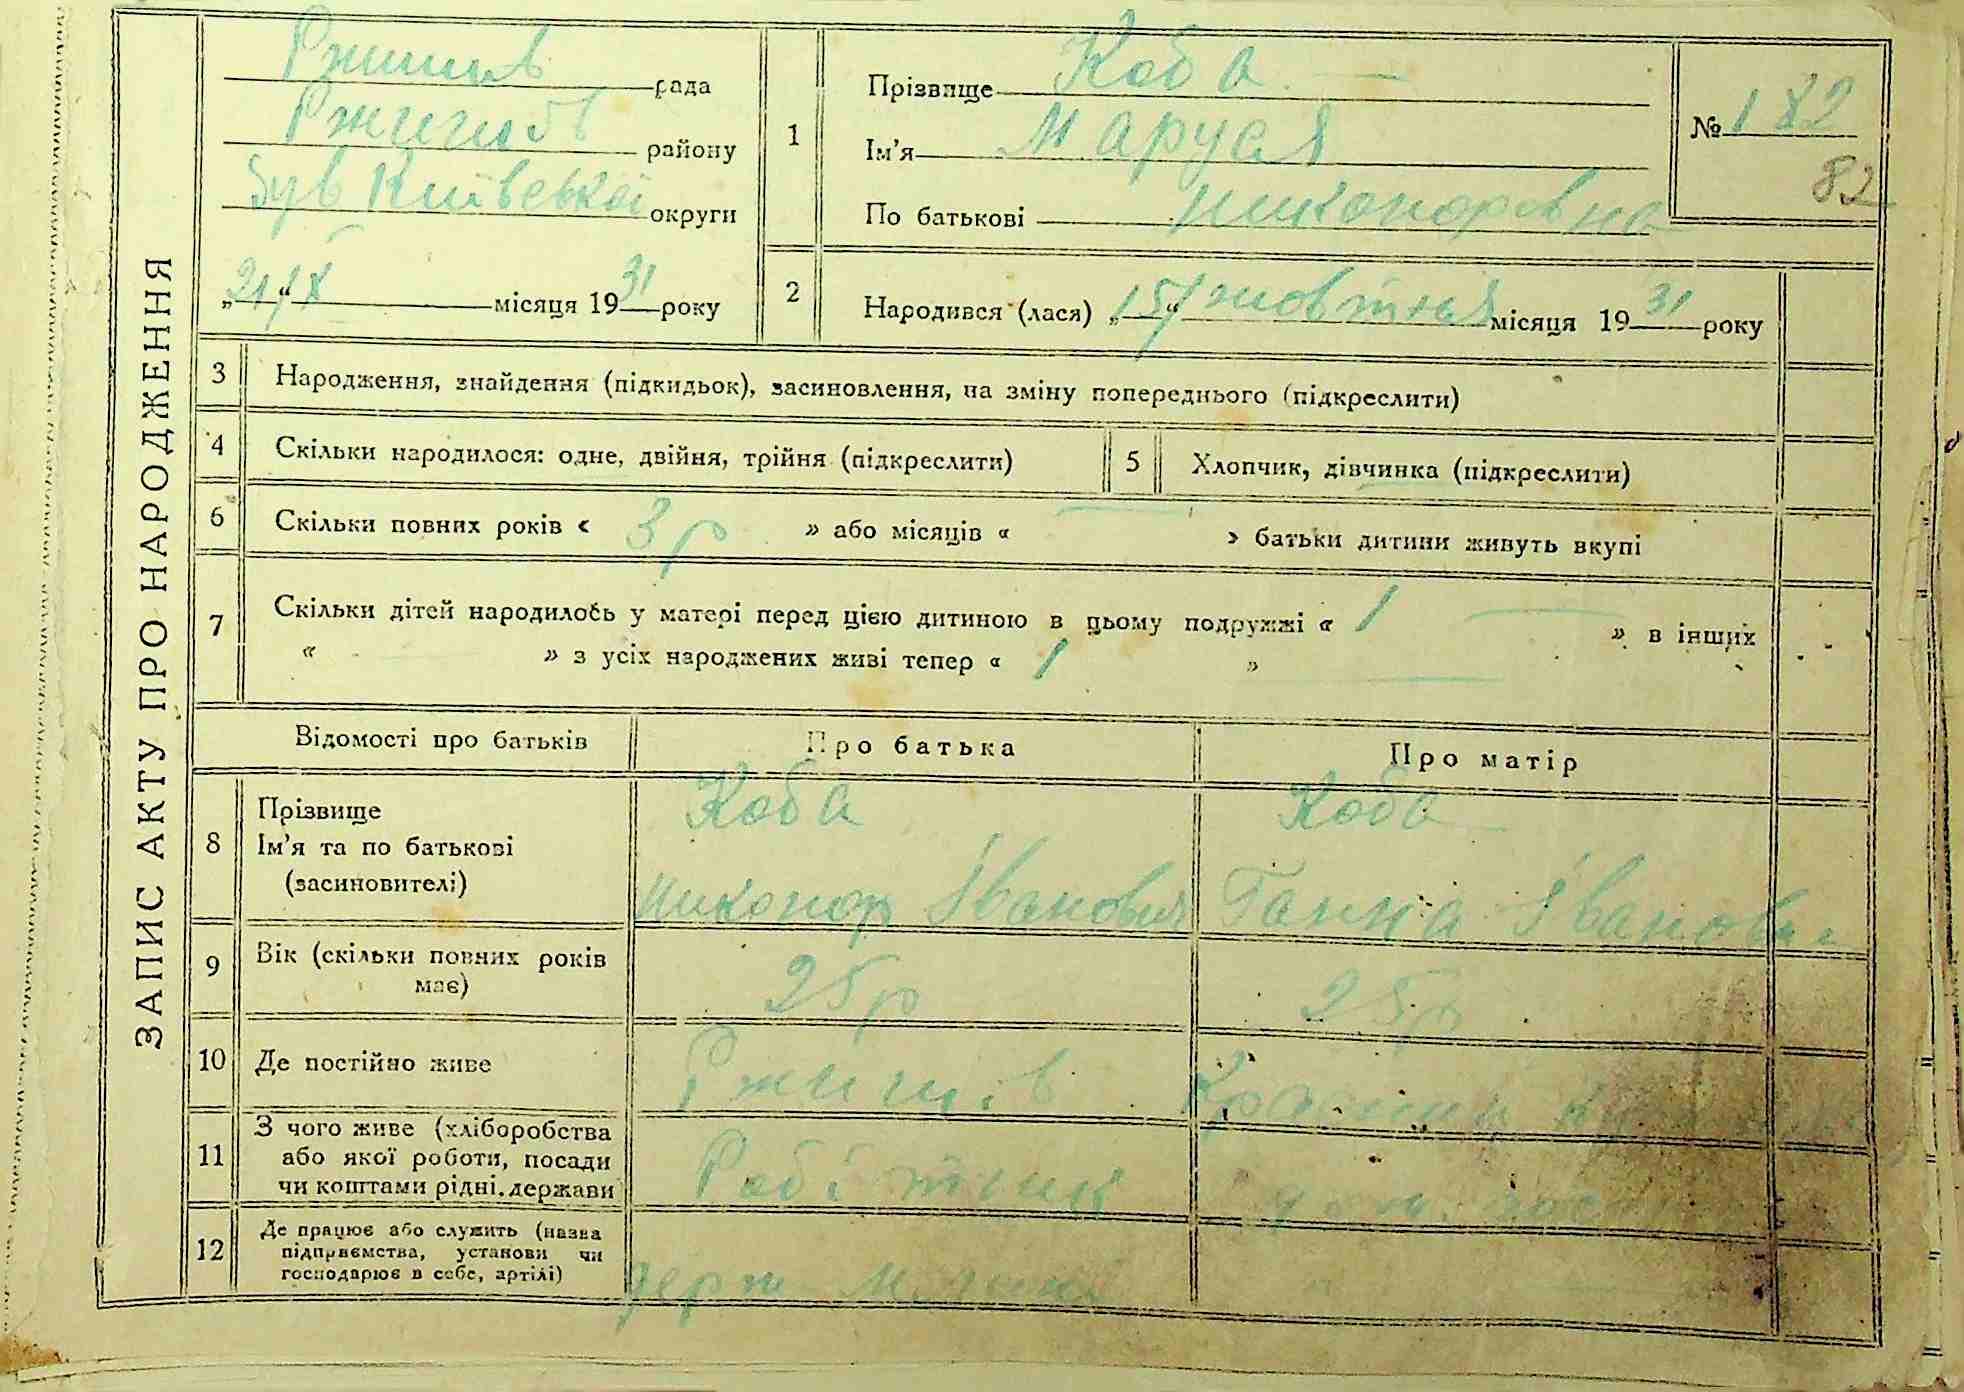 ЗАПИС АКТУ ПРО НАРОДЖЕННЯ
Ржищів рада
Ржищів району
був Київської округи
„21/“ X місяця 1931 року
1
Прізвище Коба
Ім'я Маруся
По батькові Никоноровна
№ 182
82
2
Народився (лася) „15/“ жовтня місяця 1931 року
3 Народження, знайдення (підкидьок), засиновлення, на зміну попереднього (підкреслити)
4 Скільки народилося: одне, двійня, трійня (підкреслити) 5 Хлопчик, дівчинка (підкреслити)
6 Скільки повних років « 3 р » або місяців « — » батьки дитини живуть вкупі
7 Скільки дітей народилось у матері перед цією дитиною в цьому подружжі « 1 — » в інших
« — » з усіх народжених живі тепер « 1 » —
Відомості про батьків Про батька Про матір
8 Прізвище Коба Коба
Ім'я та по батькові
(засиновителі) Никонор Іванович Ганна Іванов
9 Вік (скільки повних років має) 25 р 25 р
10 Де постійно живе Ржищів
11 З чого живе (хліборобства
або якої роботи, посади
чи коштами рідні. держави Робітник
12 Де працює або служить (назва
підприємства, установи чи
господарює в себе, артілі) держ